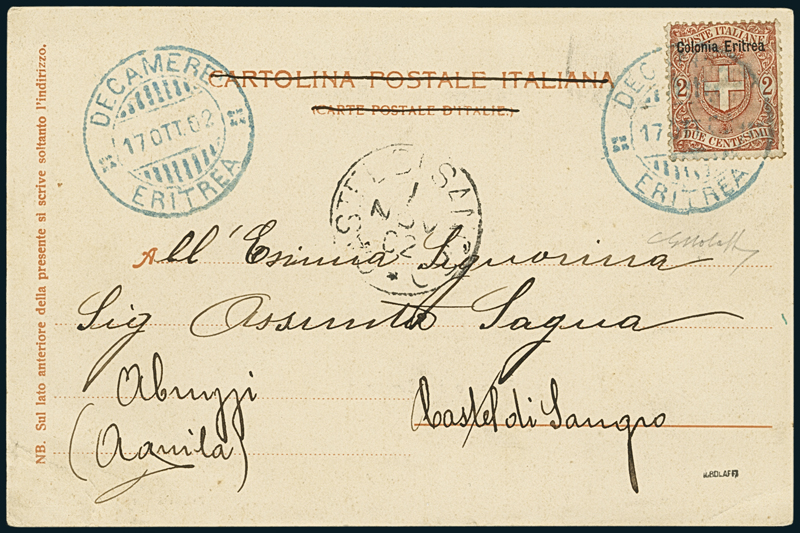 DECAMERE
17 OTT. 02
ERITREA
CARTOLINA POSTALE ITALIANA
(CARTE POSTALE D'ITALIE.)
POSTE ITALIANE
Colonia Eritrea
2 2
DUE CENTESIMI
DECA
17
ERITREA
CASTEL DI SAN
NOV
02
All' Esimia Signorina
Sig Assunta Sagua
Abruzzi
Castel di Sangro
(Aquila)
NB. Sul lato anteriore della presente si scrive soltanto l'indirizzo.
A.BOLAFFI